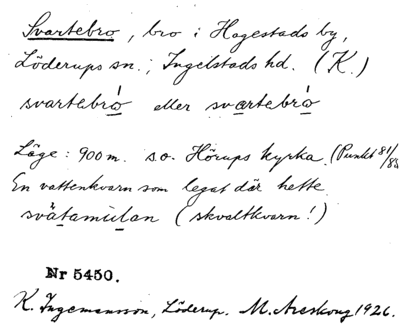 Svartebro, bro i Hagestads by,
Löderups sn., Ingelstads hd. (K.)
svartebro eller svartebro
Läge: 900 m. s.o. Hörups kyrka. (Punkt 81/85
En vattenkvarn som legat där hette
svätamulan (skvaltkvarn!)
Nr 5450.
K. Ingemansson, Löderup. M. Areskoug 1926.